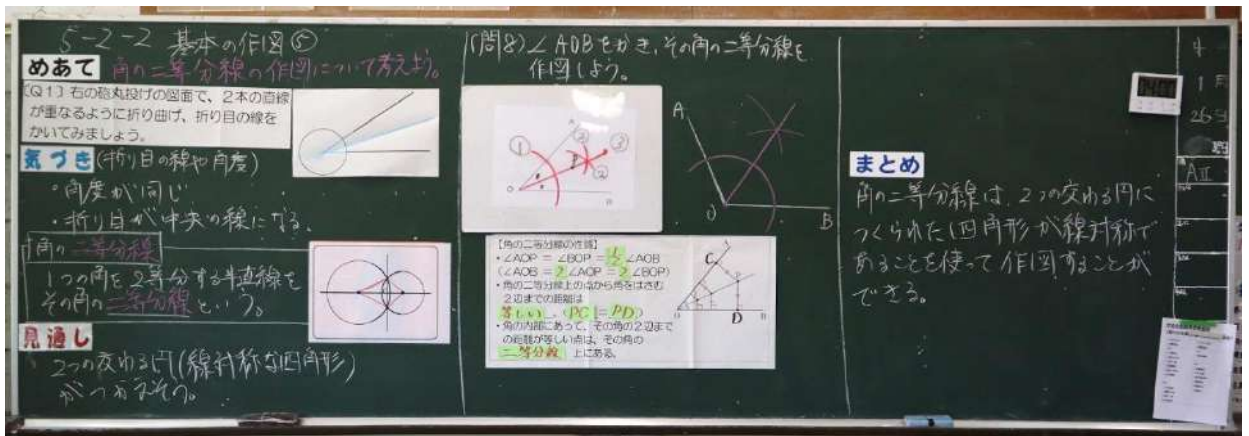 5-2-2 基本の作図⑤
めあて 角の二等分線の作図について考えよう。
〔Q1〕右の砲丸投げの図面で、2本の直線
が重なるように折り曲げ、折り目の線を
かいてみましょう。
気づき(折り目の線や角度)
・角度が同じ
・折り目が中央の線になる。
角の二等分線
1つの角を2等分する半直線を
その角の二等分線という。
見通し
2つの交わる円(線対称な四角形)
がつかえそう。
(問8)∠AOBをかき、その角の二等分線を
作図しよう。
① ② ③
②
P
O
A
O B
【角の二等分線の性質】
・∠AOP = ∠BOP = 1/2 ∠AOB
(∠AOB = 2 ∠AOP = 2 ∠BOP)
・角の二等分線上の点から角をはさむ
2辺までの距離は
等しい 。(PC = PD)
・角の内部にあって、その角の2辺まで
の距離が等しい点は、その角の
二等分線 上にある。
C
D
まとめ
角の二等分線は、2つの交わる円に
つくられた四角形が線対称で
あることを使って作図することが
できる。
4
1月
26
AⅡ